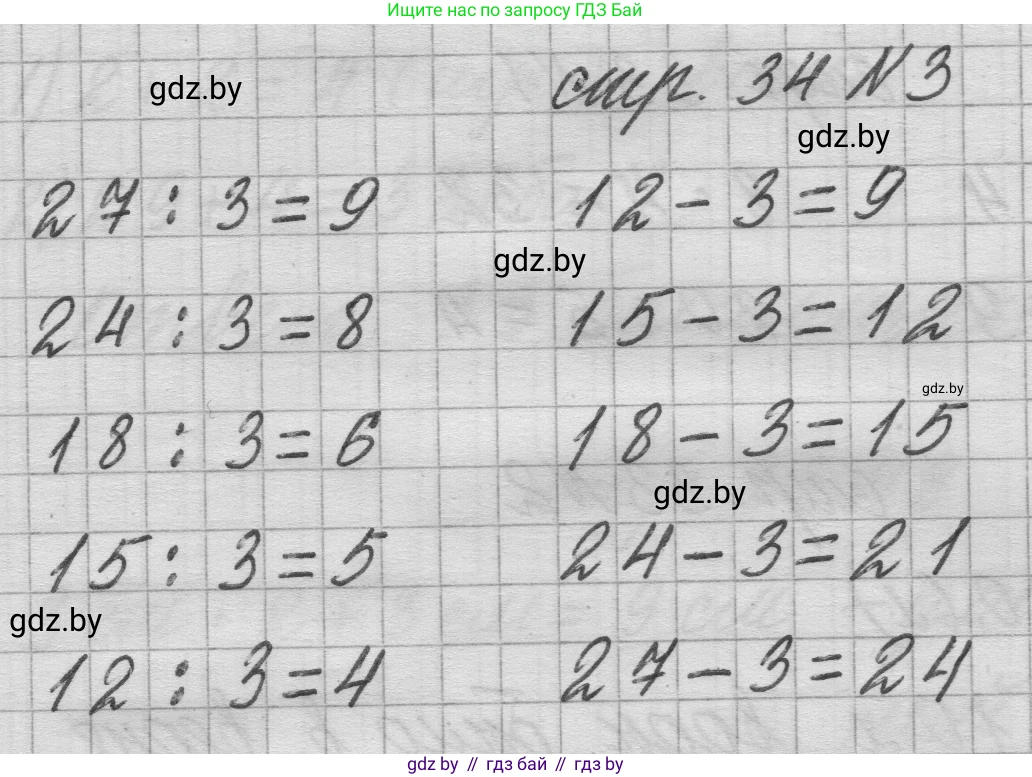 Ищите нас по запросу ГДЗ Бай
gdz.by
стр. 34 N 3
gdz.by
27 : 3 = 9
12 - 3 = 9
gdz.by
24 : 3 = 8
15 - 3 = 12
gdz.by
18 : 3 = 6
18 - 3 = 15
gdz.by
15 : 3 = 5
24 - 3 = 21
gdz.by
12 : 3 = 4
27 - 3 = 24
gdz.by // гдз бай // гдз by